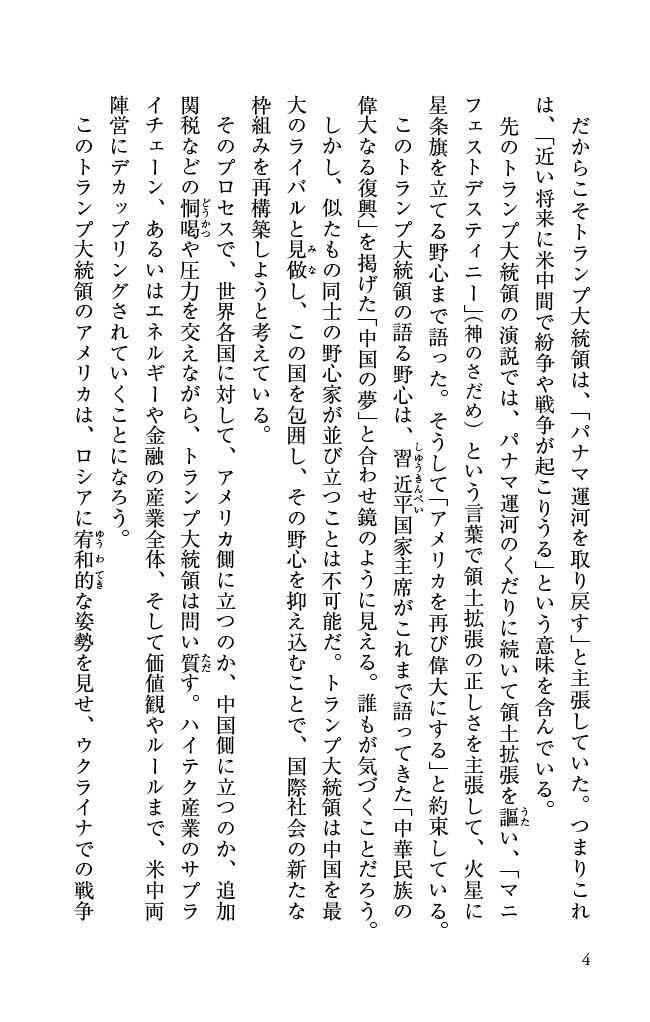 だからこそトランプ大統領は、「パナマ運河を取り戻す」と主張していた。つまりこれ
は、「近い将来に米中間で紛争や戦争が起こりうる」という意味を含んでいる。
先のトランプ大統領の演説では、パナマ運河のくだりに続いて領土拡張を謳い、「マニ
フェストデスティニー」（神のさだめ）という言葉で領土拡張の正しさを主張して、火星に
星条旗を立てる野心まで語った。そうして「アメリカを再び偉大にする」と約束している。
このトランプ大統領の語る野心は、習近平国家主席がこれまで語ってきた「中華民族の
偉大なる復興」を掲げた「中国の夢」と合わせ鏡のように見える。誰もが気づくことだろう。
しかし、似たもの同士の野心家が並び立つことは不可能だ。トランプ大統領は中国を最
大のライバルと見做し、この国を包囲し、その野心を抑え込むことで、国際社会の新たな
枠組みを再構築しようと考えている。
そのプロセスで、世界各国に対して、アメリカ側に立つのか、中国側に立つのか、追加
関税などの恫喝や圧力を交えながら、トランプ大統領は問い質す。ハイテク産業のサプラ
イチェーン、あるいはエネルギーや金融の産業全体、そして価値観やルールまで、米中両
陣営にデカップリングされていくことになろう。
このトランプ大統領のアメリカは、ロシアに宥和的な姿勢を見せ、ウクライナでの戦争
4